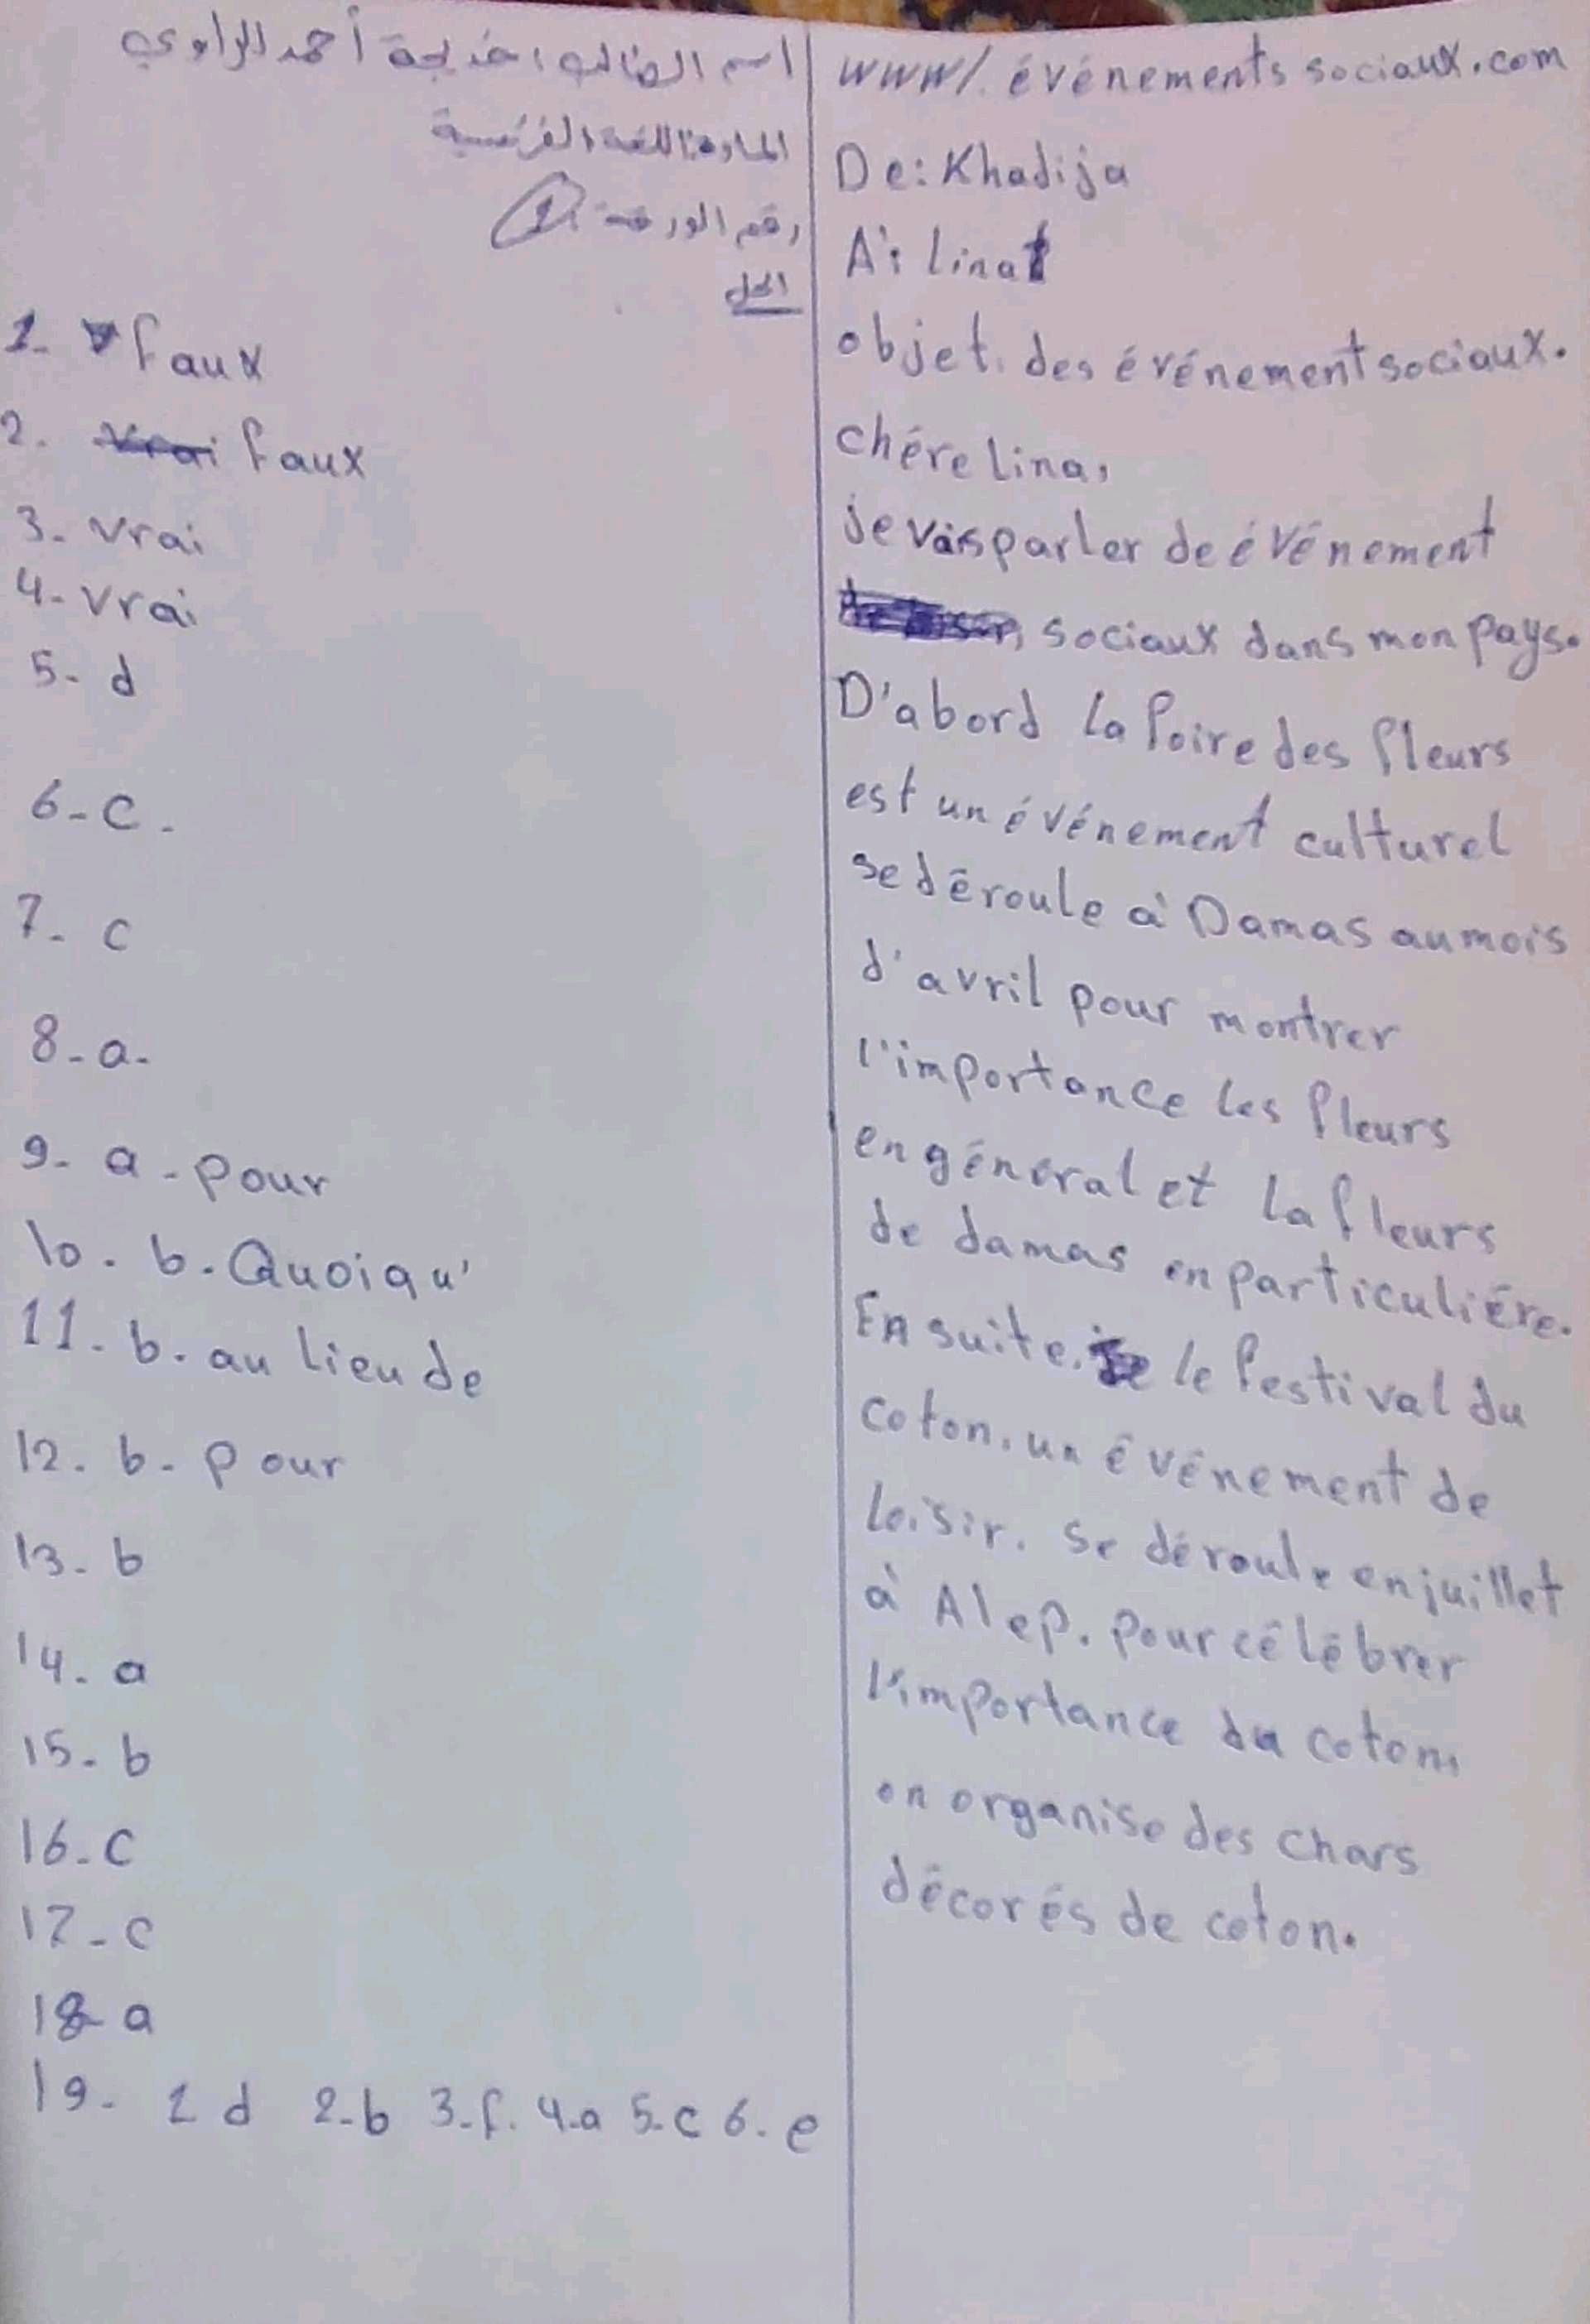 اسم الطالب: خديجة أحمد الراوي
المادة: اللغة الفرنسية
رقم الورقة: 1
الحل
1- faux
2. Vrai faux
3- Vrai
4- Vrai
5- d
6- C-
7- c
8- a-
9- a - pour
10. b. Quoiqu'
11. b. au lieu de
12. b- pour
13- b
14- a
15- b
16- C
17- c
18- a
19- 1 d 2-b 3-f. 4-a 5-c 6. e
www/. événements sociaux.com
De: Khadija
A: lina
objet. des événement sociaux.
chére lina,
je vais parler de événement
sociaux dans mon pays.
D'abord la foire des fleurs
est un événement culturel
se déroule à Damas au mois
d'avril pour montrer
l'importance les fleurs
en général et la fleurs
de damas en particuliére.
Ensuite, le festival du
coton, un événement de
loisir. se déroule en juillet
à Alep. Pour célébrer
l'importance du coton,
on organise des chars
décorés de coton.